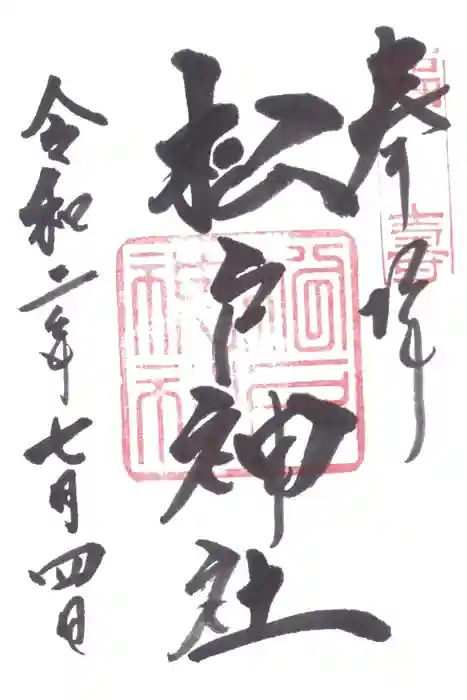 奉拝
松戸神社
令和二年七月四日